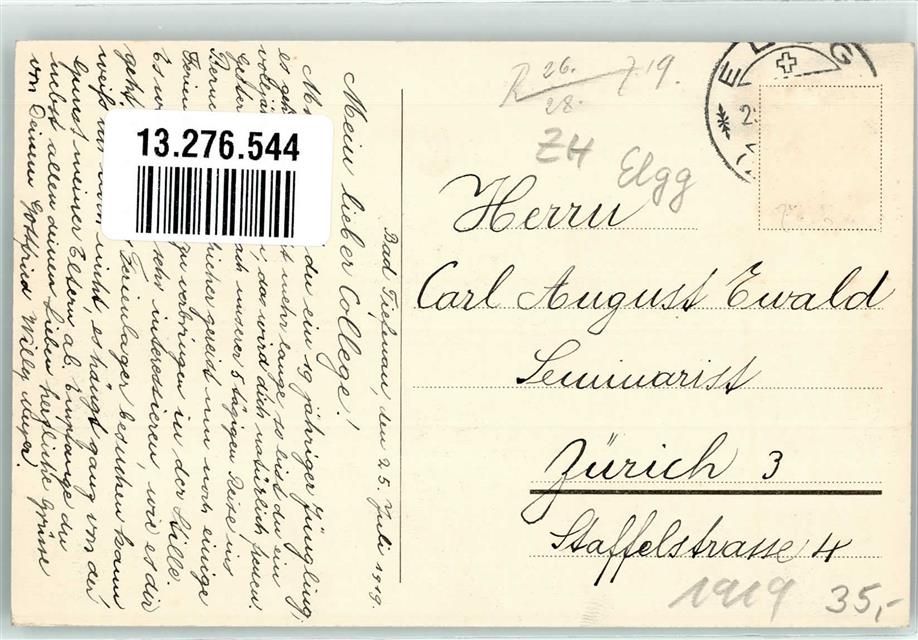 Bad Fiehnau, den 25. Juli 1919.
Mein lieber College!
du ein 19 jähriger Jüngling,
es geht mehr lange so bist du ein
das wird dich natürlich freuen.
nach unserer 5 tägigen Reise ins
gereist um noch einige
Ferien zu verbringen in der Stille.
Es sehr interessieren, wie es dir
geht. Ferienlager besuchen kann
weiß ich noch nicht, es hängt ganz von der
Gunst meiner Eltern ab. Empfange du
nebst allen deinen Lieben herzliche Grüsse
von Deinem Gottfried Willy Meyer.
13.276.544
R 26. 7 19.
28.
ZH Elgg
ELGG
Herrn
Carl August Ewald
Seminarist
Zürich 3
Staffelstrasse 4
1919 35,-